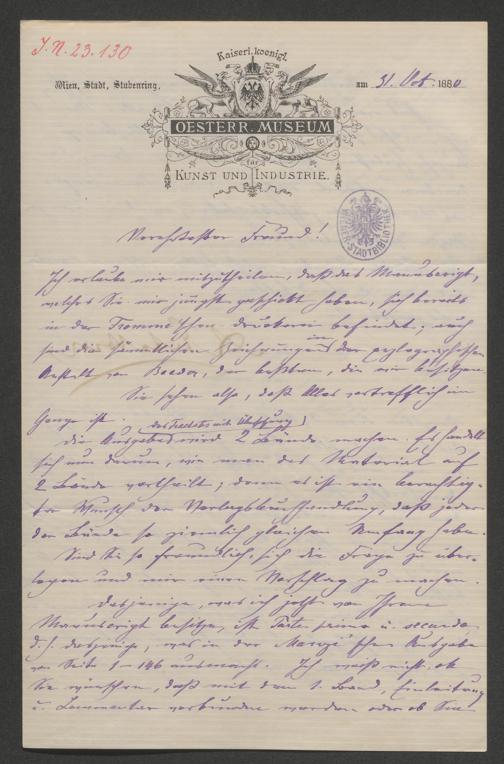 J.N. 23.130
Kaiserl. koenigl.
Wien, Stadt, Stubenring,
am 31. Oct. 1880
OESTERR. MUSEUM
für
KUNST UND INDUSTRIE.
WIENER STADTBIBLIOTHEK
Verehrtester Freund!
Ich erlaube mir mitzutheilen, daß das Manuscript,
welches Sie mir jüngst geschickt haben, sich bereits
in der Fromme'schen Druckerei befindet; auch
sind die sämmtlichen Zeichnungen in der xylographischen
Anstalt von Bader, der besten, die wir besitzen.
Sie sehen also, daß Alles vortrefflich im
Gange ist.
Die Ausgabe wird 2 Bände machen. Es handelt
sich nun darum, wie man das Material auf
2 Bände vertheilt; denn es ist ein berechtig-
ter Wunsch der Verlagsbuchhandlung, daß jeder
der Bände so ziemlich gleichen Umfang habe.
Sind Sie so freundlich, sich die Frage zu über-
legen und mir einen Vorschlag zu machen.
Dasjenige, was ich jetzt von Ihrem
Manuscript besitze, ist Parte prima u. secunda
d. h. dasjenige, was in der Marzi'schen Ausgabe
von Seite 1–146 ausmacht. Ich weiß nicht, ob
Sie wünschen, daß mit dem 1. Band, Einleitung
u. Commentar verbunden werden oder ob Sie